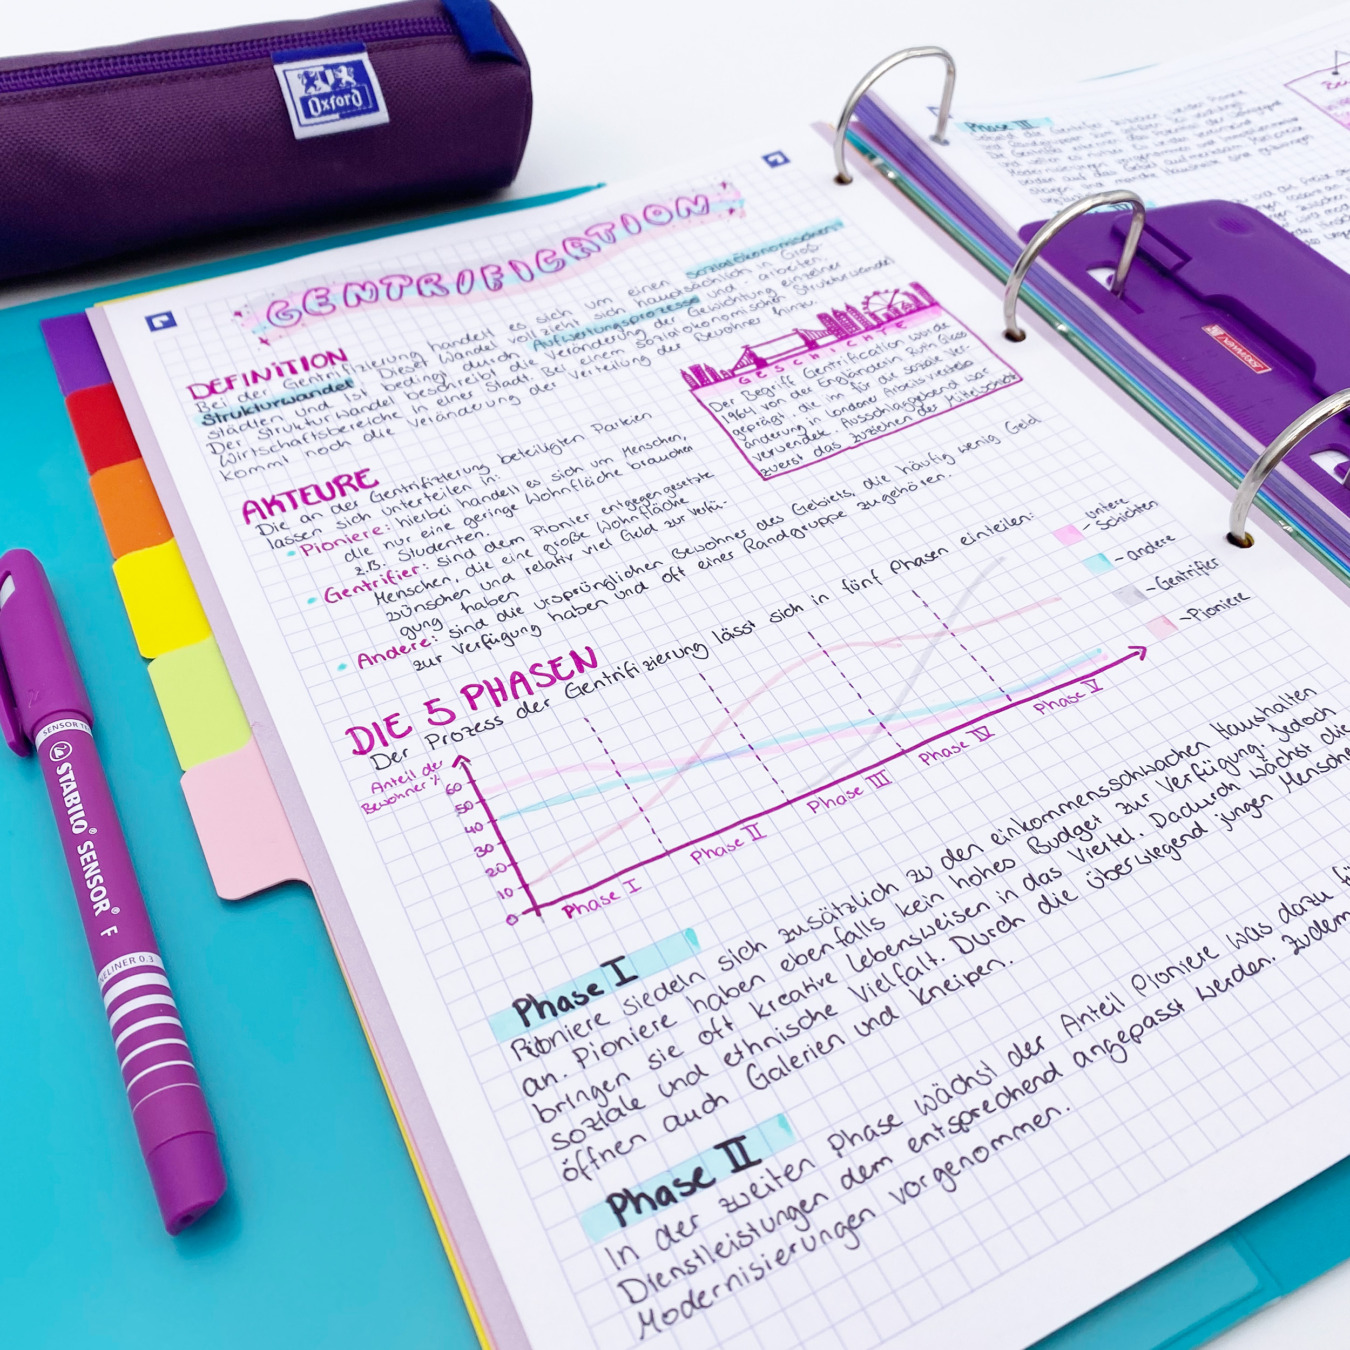 Oxford
GENTRIFICATION
DEFINITION
Bei der Gentrifizierung handelt es sich um einen sozialökonomischen
Strukturwandel. Dieser Wandel vollzieht sich hauptsächlich in Groß-
städten und ist bedingt durch Aufwertungsprozesse und -arbeiten.
Der Strukturwandel beschreibt die Veränderung der Gewichtung einzelner
Wirtschaftsbereiche in einer Stadt. Bei einem sozialökonomischen Strukturwandel
kommt noch die Veränderung der Verteilung der Bewohner hinzu.
GESCHICHTE
Der Begriff Gentrification wurde
1964 von der Engländerin Ruth Glass
geprägt, die im für die soziale Ver-
änderung in Londoner Arbeitervierteln
verwendete. Ausschlaggebend war
zuerst das zuziehen der Mittelschicht
AKTEURE
Die an der Gentrifizierung beteiligten Parteien
lassen sich unterteilen in:
• Pioniere: hierbei handelt es sich um Menschen,
die nur eine geringe Wohnfläche brauchen
z.B. Studenten.
• Gentrifier: sind dem Pionier entgegengesetzte
Menschen, die eine große Wohnfläche
wünschen und relativ viel Geld zur Verfü-
gung haben
• Andere: sind die ursprünglichen Bewohner des Gebiets, die häufig wenig Geld
zur Verfügung haben und oft einer Randgruppe zugehören.
DIE 5 PHASEN
Der Prozess der Gentrifizierung lässt sich in fünf Phasen einteilen:
untere
- Schichten
- andere
- Gentrifier
- Pioniere
Anteil der
Bewohner %
60
50
40
30
20
10
0
Phase I
Phase II
Phase III
Phase IV
Phase V
Phase I
Pioniere siedeln sich zusätzlich zu den einkommensschwachen Haushalten
an. Pioniere haben ebenfalls kein hohes Budget zur Verfügung. Jedoch
bringen sie oft kreative Lebensweisen in das Viertel. Dadurch wächst die
soziale und ethnische Vielfalt. Durch die überwiegend jungen Mensche
öffnen auch Galerien und Kneipen.
Phase II
In der zweiten Phase wächst der Anteil Pioniere was dazu fü
Dienstleistungen dem entsprechend angepasst werden. Zudem
Modernisierungen vorgenommen.
STABILO® SENSOR® F
SENSOR
FINELINER 0.3
Phase III
BRUNNEN